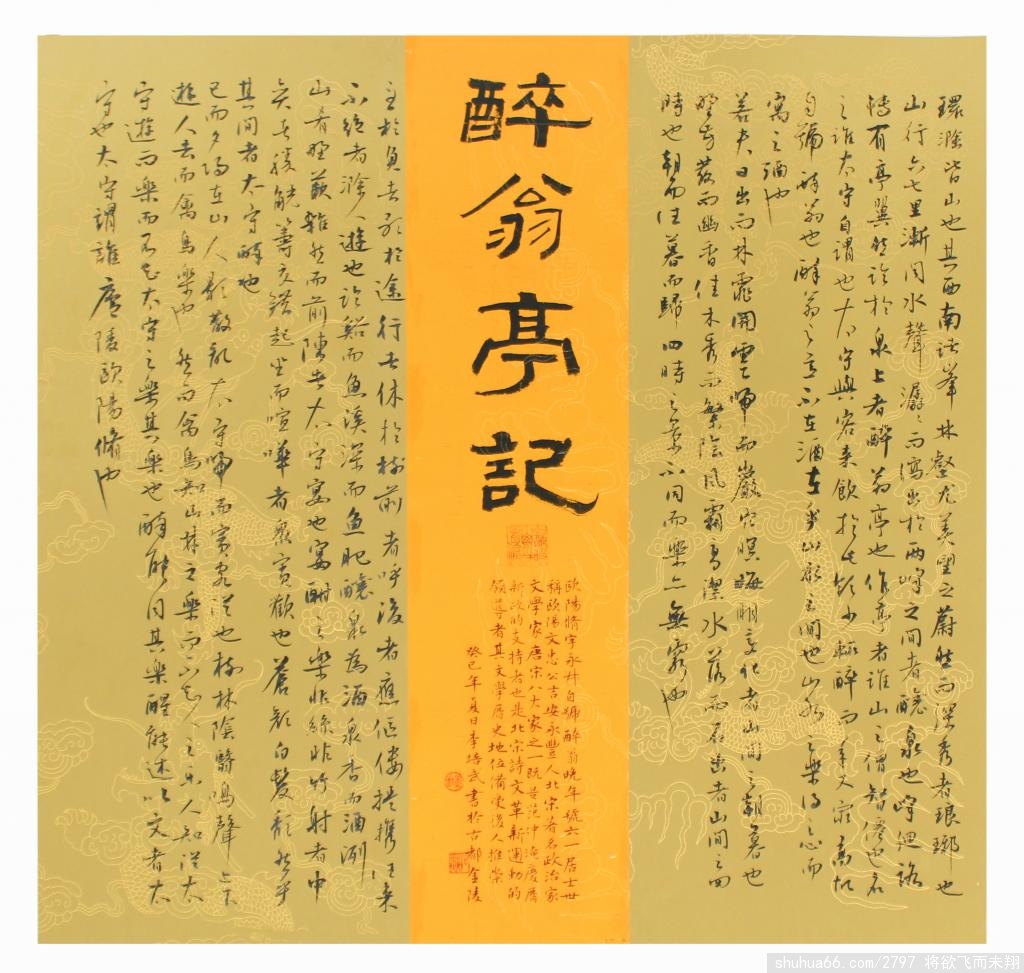 環滁皆山也其西南諸峯林壑尤美望之蔚然而深秀者琅瑯也
山行六七里漸聞水聲潺〻而瀉出於兩峰之間者釀泉也峰迴路
轉有亭翼然臨於泉上者醉翁亭也作亭者誰山之僧智僊也名
之誰太守自謂也太守與客來飲於此飲少輒醉而年又最高故
自號醉翁也醉翁之意不在酒在乎山水之間也山水之樂得之心而
寓之酒也
若夫日出而林霏開雲歸而巖穴暝晦明變化者山間之朝暮也
野芳發而幽香佳木秀而繁陰風霜高潔水落而石出者山間之四
時也朝而往暮而歸四時之景不同而樂亦無窮也
醉翁亭記
歐陽脩字永叔自號醉翁晚年號六一居士世
稱歐陽文忠公吉安永豐人北宋著名政治家
文學家唐宋八大家之一既是范仲淹慶曆
新政的支持者也是北宋詩文革新運動的
領導者其文學歷史地位備受後人推崇
癸巳年夏日李培武書於古都金陵
至於負者歌於途行者休於樹前者呼後者應傴僂提攜往來
不絕者滁人遊也臨谿而魚溪深而魚肥釀泉為酒泉香而酒洌
山肴野蔌雜然而前陳者太守宴也宴酣之樂非絲非竹射者中
奕者勝觥籌交錯起坐而喧嘩者衆賓歡也蒼顏白髮頹然乎
其間者太守醉也
已而夕陽在山人影散亂太守歸而賓客從也樹林陰翳鳴聲上下
遊人去而禽鳥樂也然而禽鳥知山林之樂而不知人之樂人知從太
守遊而樂而不知太守之樂其樂也醉能同其樂醒能述以文者太
守也太守謂誰廬陵歐陽脩也
shuhua66.com/2797 将欲飞而未翔